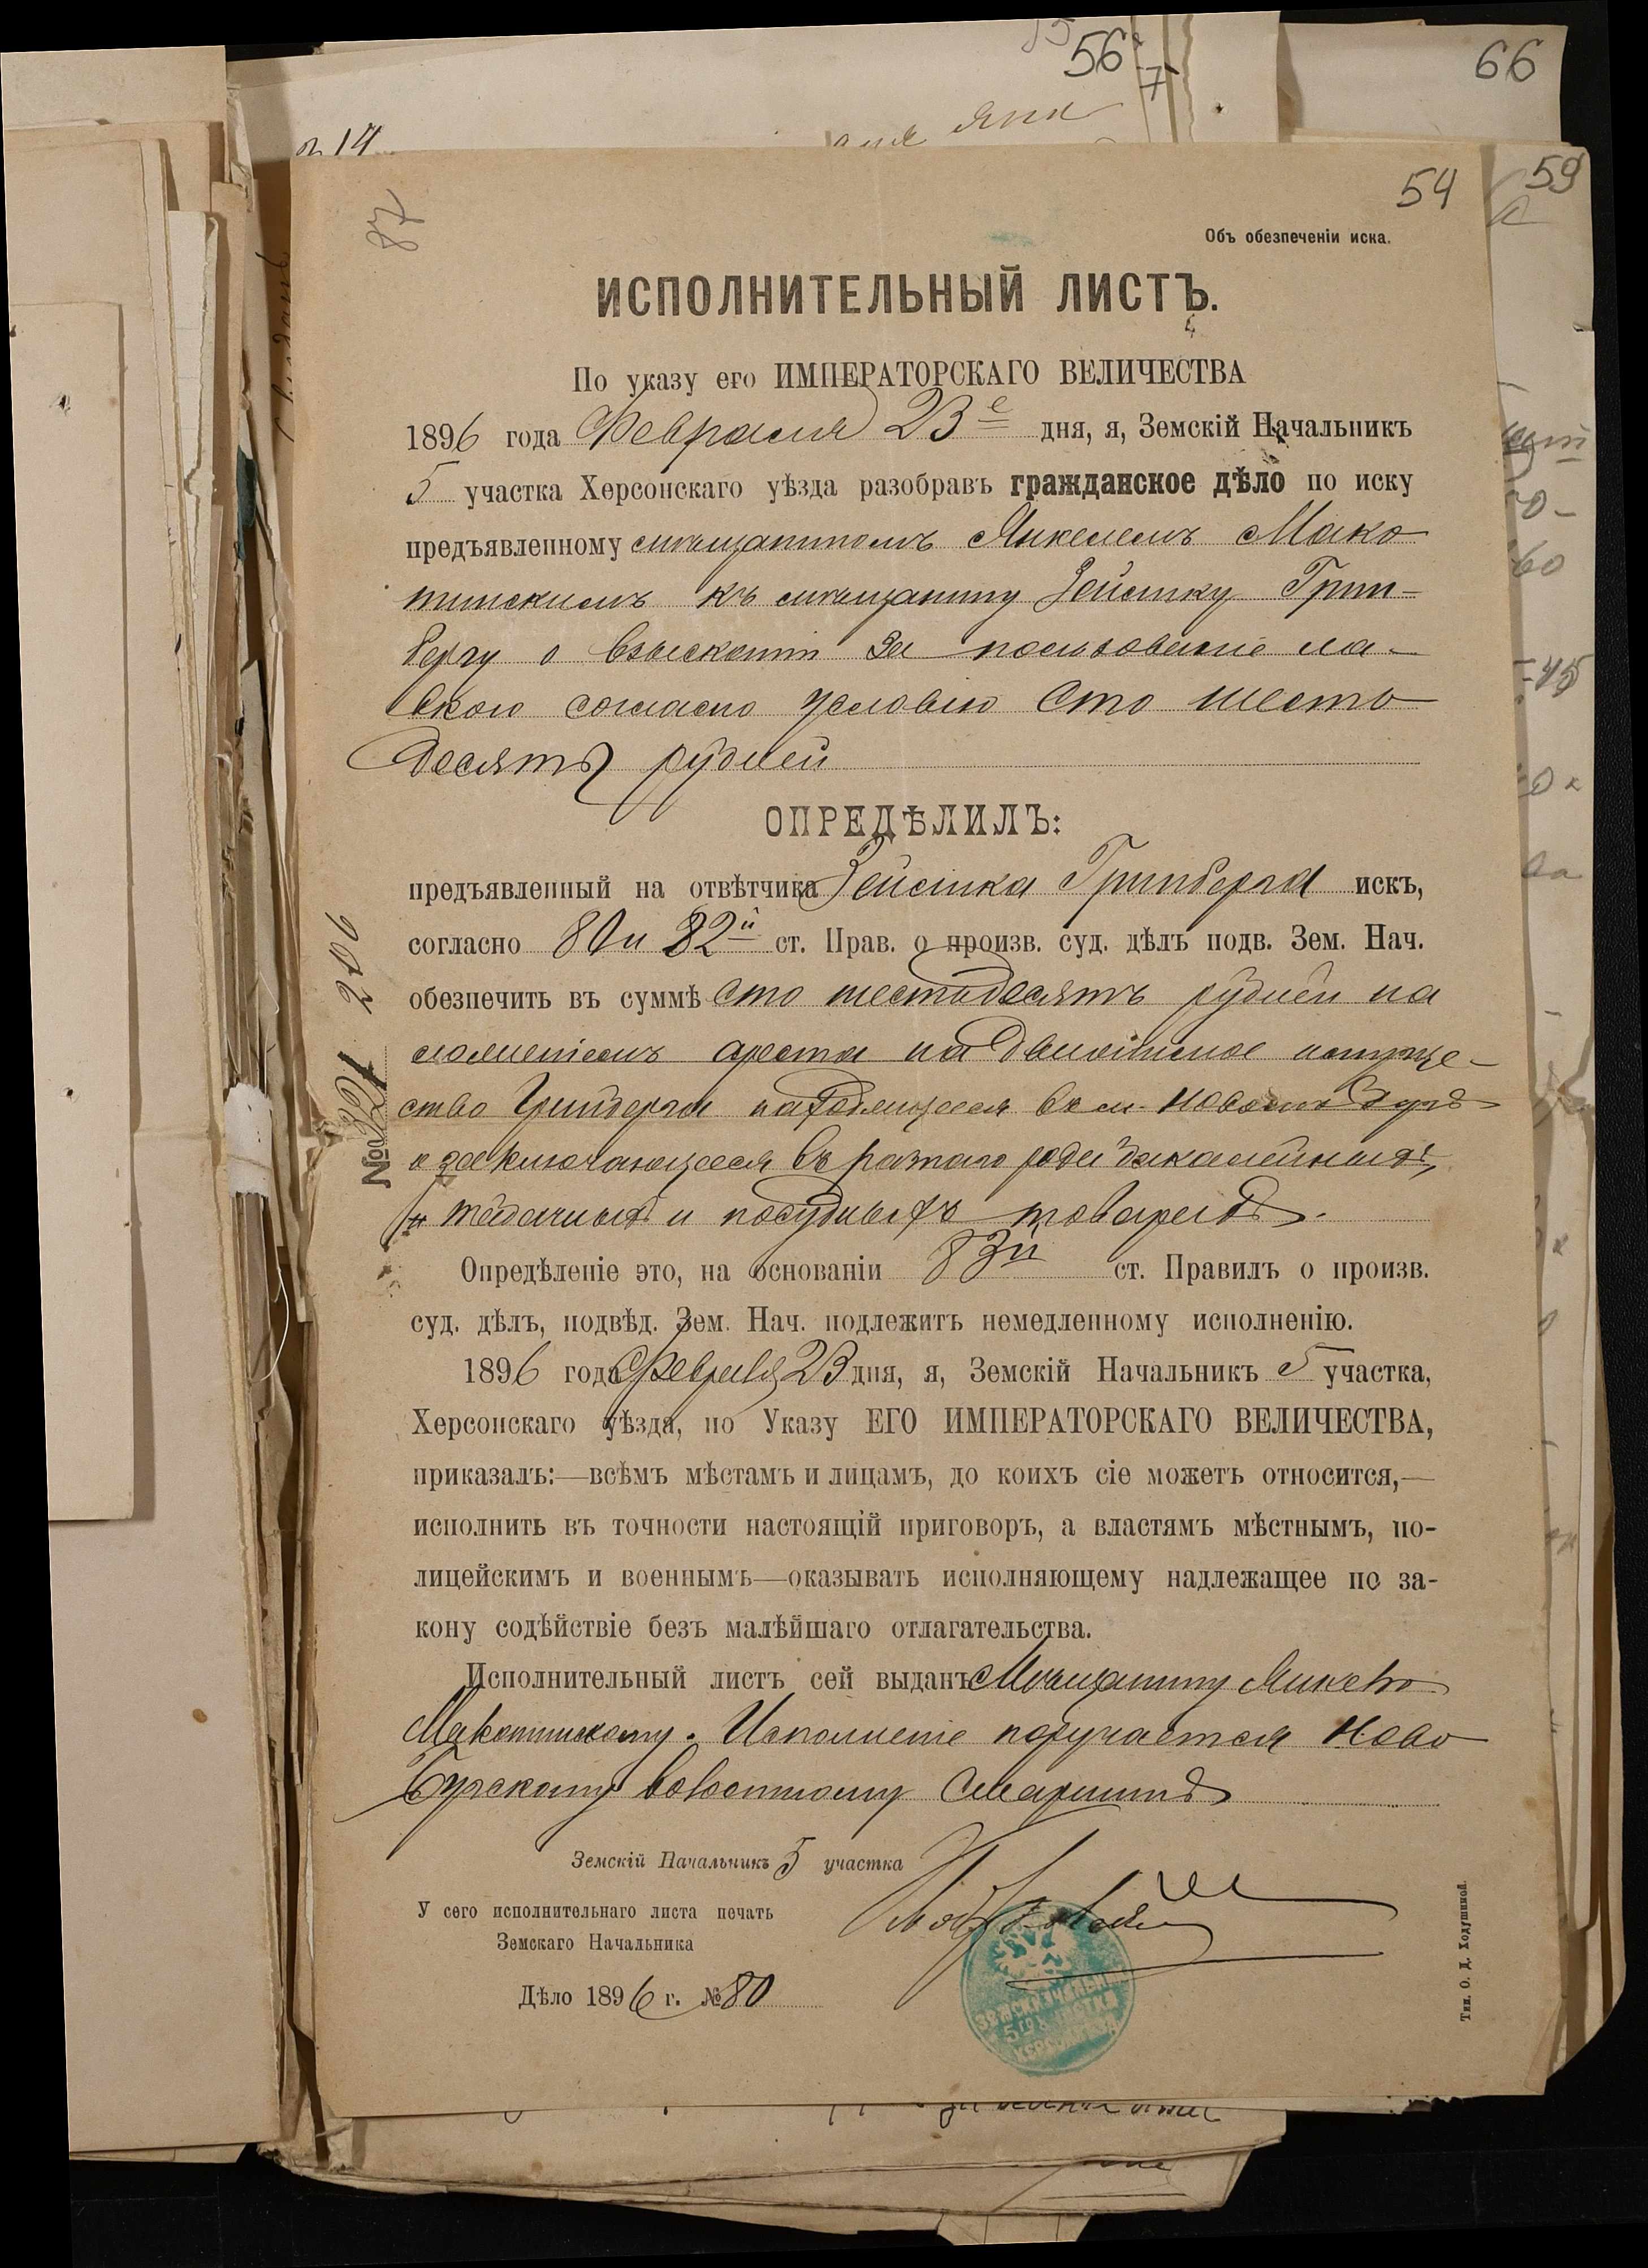 56
7
66
54
59
87
Объ обезпеченіи иска.
ИСПОЛНИТЕЛЬНЫЙ ЛИСТЪ.
По указу его ИМПЕРАТОРСКАГО ВЕЛИЧЕСТВА
1896 года Февраля 23 е дня, я, Земскій Начальникъ
5 участка Херсонскаго уѣзда разобравъ гражданское дѣло по иску
предъявленному мѣщаниномъ Янкелемъ Мако
тинскимъ къ мѣщанину Зейлику Грин-
бергу о взысканіи за пользованіе ла-
вкою согласно условію сто шесть
десятъ рублей
ОПРЕДѢЛИЛЪ:
предъявленный на отвѣтчика Зейлика Гринберга искъ,
согласно 80 и 82 й ст. Прав. о произв. суд. дѣлъ подв. Зем. Нач.
обезпечить въ суммѣ сто шестьдесятъ рублей на
ложеніемъ ареста на движимое имуще-
ство Гринберга находящееся въ м. Новомъ Бугѣ
и заключающееся въ разнаго рода бакалейныхъ,
табачныхъ и посудныхъ товарахъ.
Опредѣленіе это, на основаніи 83 й ст. Правилъ о произв.
суд. дѣлъ, подвѣд. Зем. Нач. подлежитъ немедленному исполненію.
1896 года Февраля 23 дня, я, Земскій Начальникъ 5 участка,
Херсонскаго уѣзда, по Указу ЕГО ИМПЕРАТОРСКАГО ВЕЛИЧЕСТВА,
приказалъ:—всѣмъ мѣстамъ и лицамъ, до коихъ сіе можетъ относится,—
исполнить въ точности настоящій приговоръ, а властямъ мѣстнымъ, по-
лицейскимъ и военнымъ—оказывать исполняющему надлежащее по за-
кону содѣйствіе безъ малѣйшаго отлагательства.
Исполнительный листъ сей выданъ Мѣщанину Янкелю
Макотинскому. Исполненіе поручается Ново
Бугскому волостному Старшинѣ
Земскій Начальникъ 5 участка
У сего исполнительнаго листа печать
Земскаго Начальника
Дѣло 1896 г. № 80
Тип. О. Д. Ходушиной.
№ 321